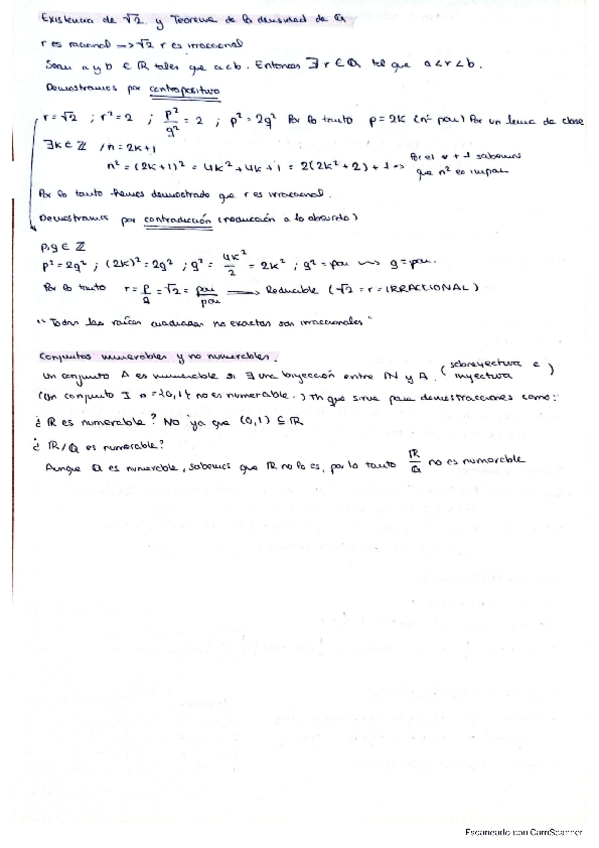 Existencia de √2 y Teorema de la densidad de Q
r es racional => √2 r es irracional
Sean a y b ∈ R tales que a<b. Entonces ∃ r ∈ Q tal que a<r<b.
Demostramos por contrapositivo
r=√2 ; r²=2 ; p²/q² = 2 ; p²=2q² Por lo tanto p=2k (nº par) Por un lema de clase
∃k∈Z /n=2k+1
n²=(2k+1)²=4k²+4k+1=2(2k²+2)+1 Por el +1 sabemos que n² es impar
Por lo tanto hemos demostrado que r es irracional.
Demostramos por contradicción (reducción a lo absurdo)
p,q∈Z
p²=2q² ; (2k)²=2q² ; q²=4k²/2=2k² ; q²=par ⇝ q=par.
Por lo tanto r=p/q=√2=par/par → Reducible (√2=r=IRRACIONAL)
"Todas las raíces cuadradas no exactas son irracionales"
Conjuntos numerables y no numerables.
Un conjunto A es numerable si ∃ una biyección entre N y A. (sobreyectiva e inyectiva)
(Un conjunto I =(0,1) no es numerable.) Th que sirve para demostraciones como:
¿R es numerable? No ya que (0,1) ⊆ R
¿R/Q es numerable?
Aunque Q es numerable, sabemos que R no lo es, por lo tanto R/Q no es numerable
Escaneado con CamScanner